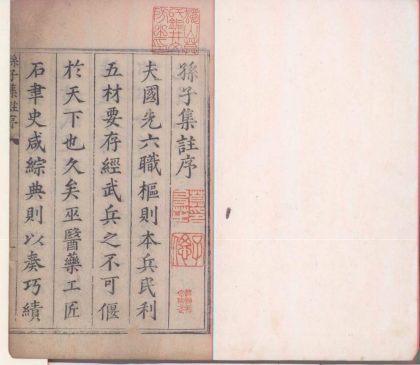 孫子集註序
夫國先六職樞則本兵民利
五材要存經武兵之不可偃
於天下也久矣巫醫藥工匠
石聿史咸綜典則以奏巧績
孫子集註序